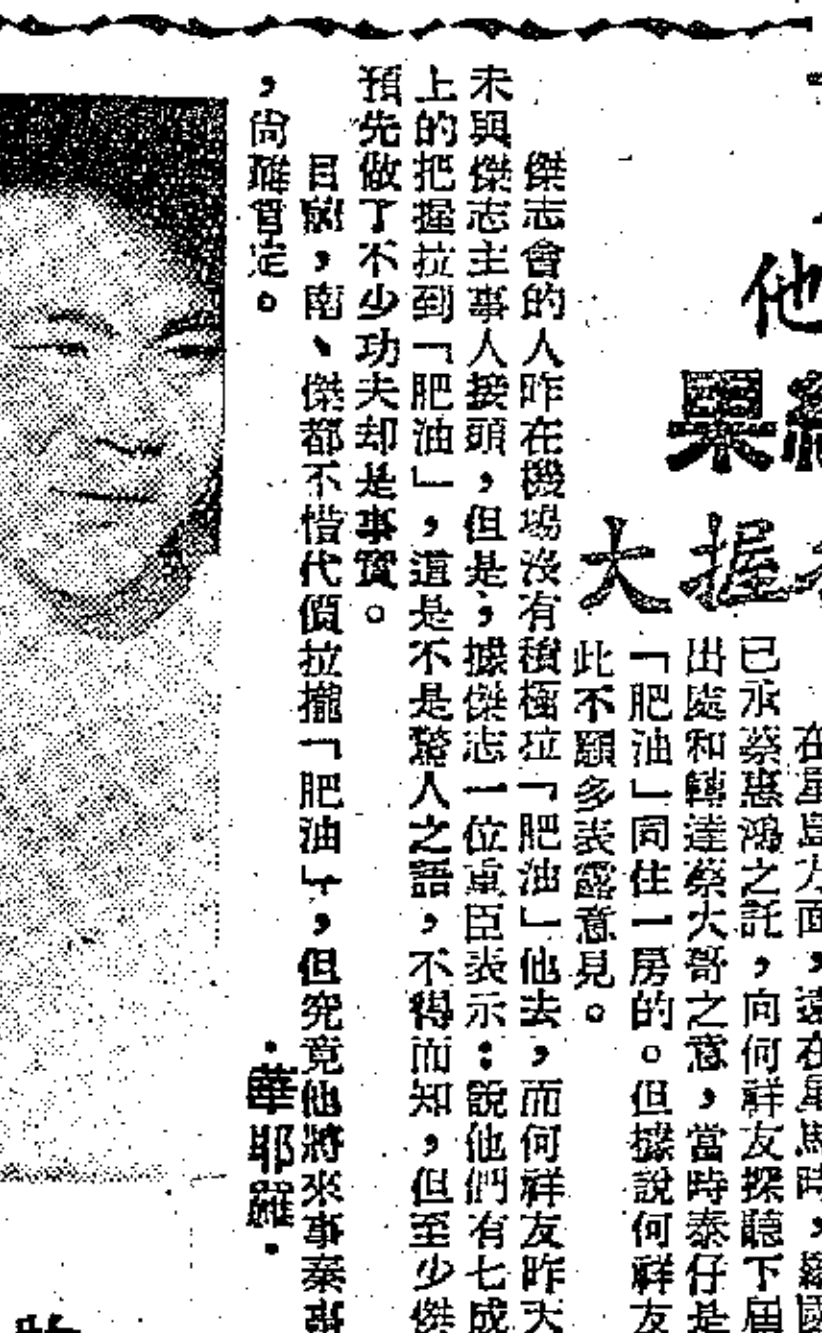 他
果
握
大
在星島方面，遠在星馬時，羅國
已承蔡惠鴻之託，向何祥友探聽下屆
出處和轉達蔡大哥之意，當時泰仔是
「肥油」同住一房的。但據說何祥友
此不願多表露意見。
傑志會的人昨在機場沒有積極拉「肥油」他去，而何祥友昨天
未與傑志主事人接頭，但是，據傑志一位重臣表示：說他們有七成
上的把握拉到「肥油」，這是不是驚人之語，不得而知，但至少傑
預先做了不少功夫却是事實。
目前，南、傑都不惜代價拉攏「肥油」，但究竟他將來事秦事
，尚難肯定。
·華耶羅·